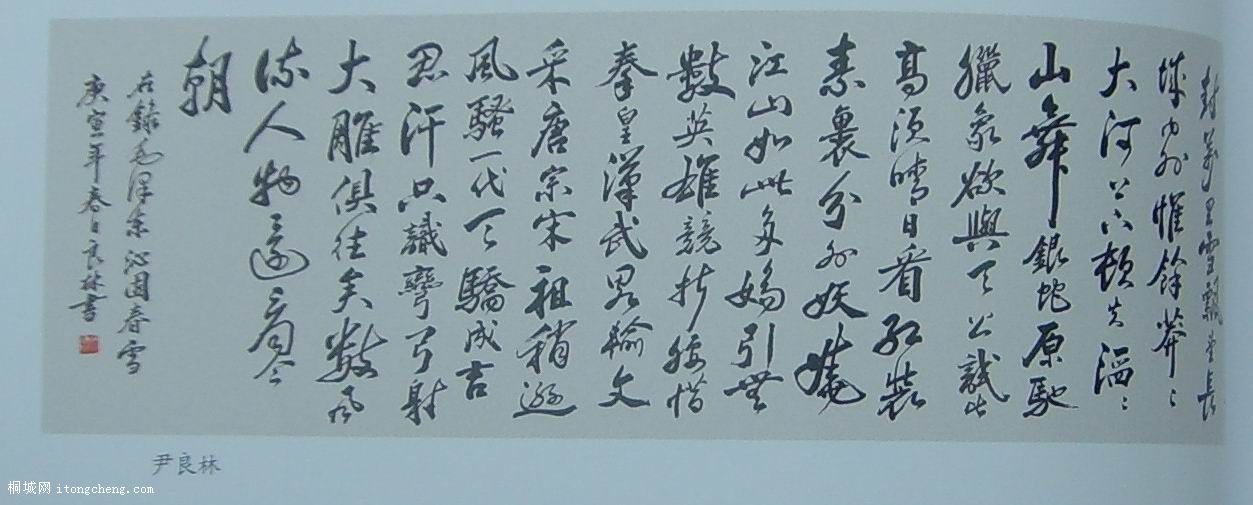 封萬里雪飄望長
城內外惟餘莽〻
大河上下頓失滔〻
山舞銀蛇原馳
臘象欲與天公試比
高須晴日看紅裝
素裹分外妖嬈
江山如此多嬌引無
數英雄競折腰惜
秦皇漢武略輸文
采唐宗宋祖稍遜
風騷一代天驕成吉
思汗只識彎弓射
大雕俱往矣數風
流人物還看今
朝
右錄毛澤東沁園春雪
庚寅年春日良林書
尹良林
桐城网 itongcheng.com